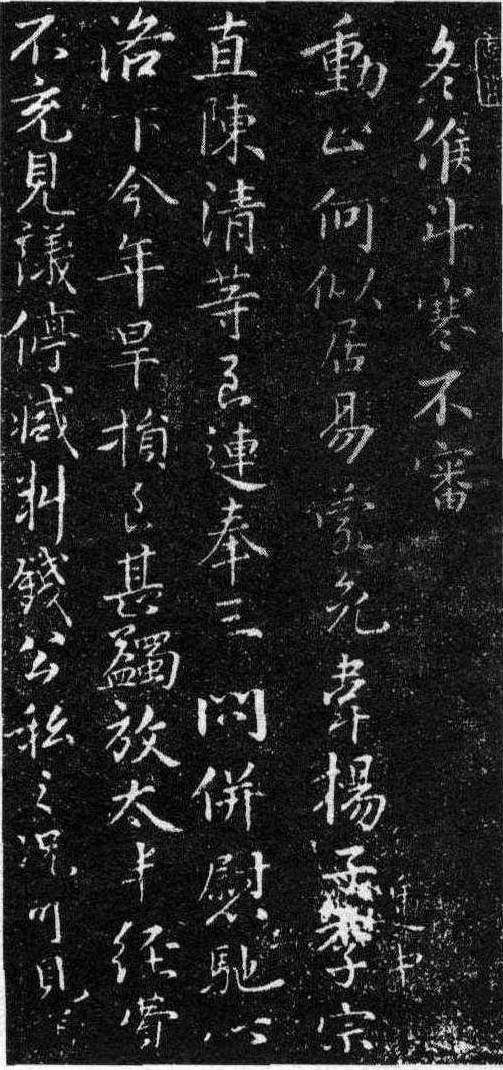 冬候斗寒不審
動止何似居易蒙免韋楊子遞中李宗
直陳清等至連奉三問併慰馳心
洛下今年旱損至甚蠲放太半經費
不充見議停減料錢公私之況可見